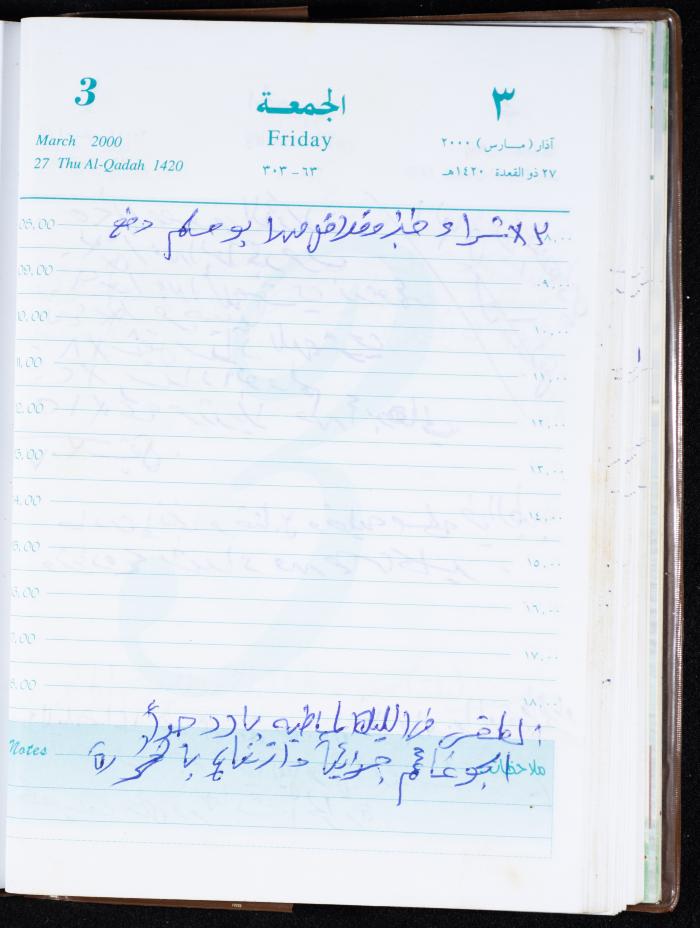 3
الجمعة
٣
March 2000
Friday
آذار (مـارس) ٢٠٠٠
27 Thu Al-Qadah 1420
٦٣ – ٣٠٣
٢٧ ذو القعدة ١٤٢٠هـ
08.00
٣ شراء خبز دفع
٠٨،٠٠
09.00
٠٩،٠٠
10.00
١٠،٠٠
11.00
١١،٠٠
12.00
١٢،٠٠
13.00
١٣،٠٠
14.00
١٤،٠٠
15.00
١٥،٠٠
16.00
١٦،٠٠
17.00
١٧،٠٠
18.00
١٨،٠٠
الطقس في الليلة الماضية بارد جداً
Notes
ملاحظات
الجو غائم جزئياً وارتفاع بالحرارة